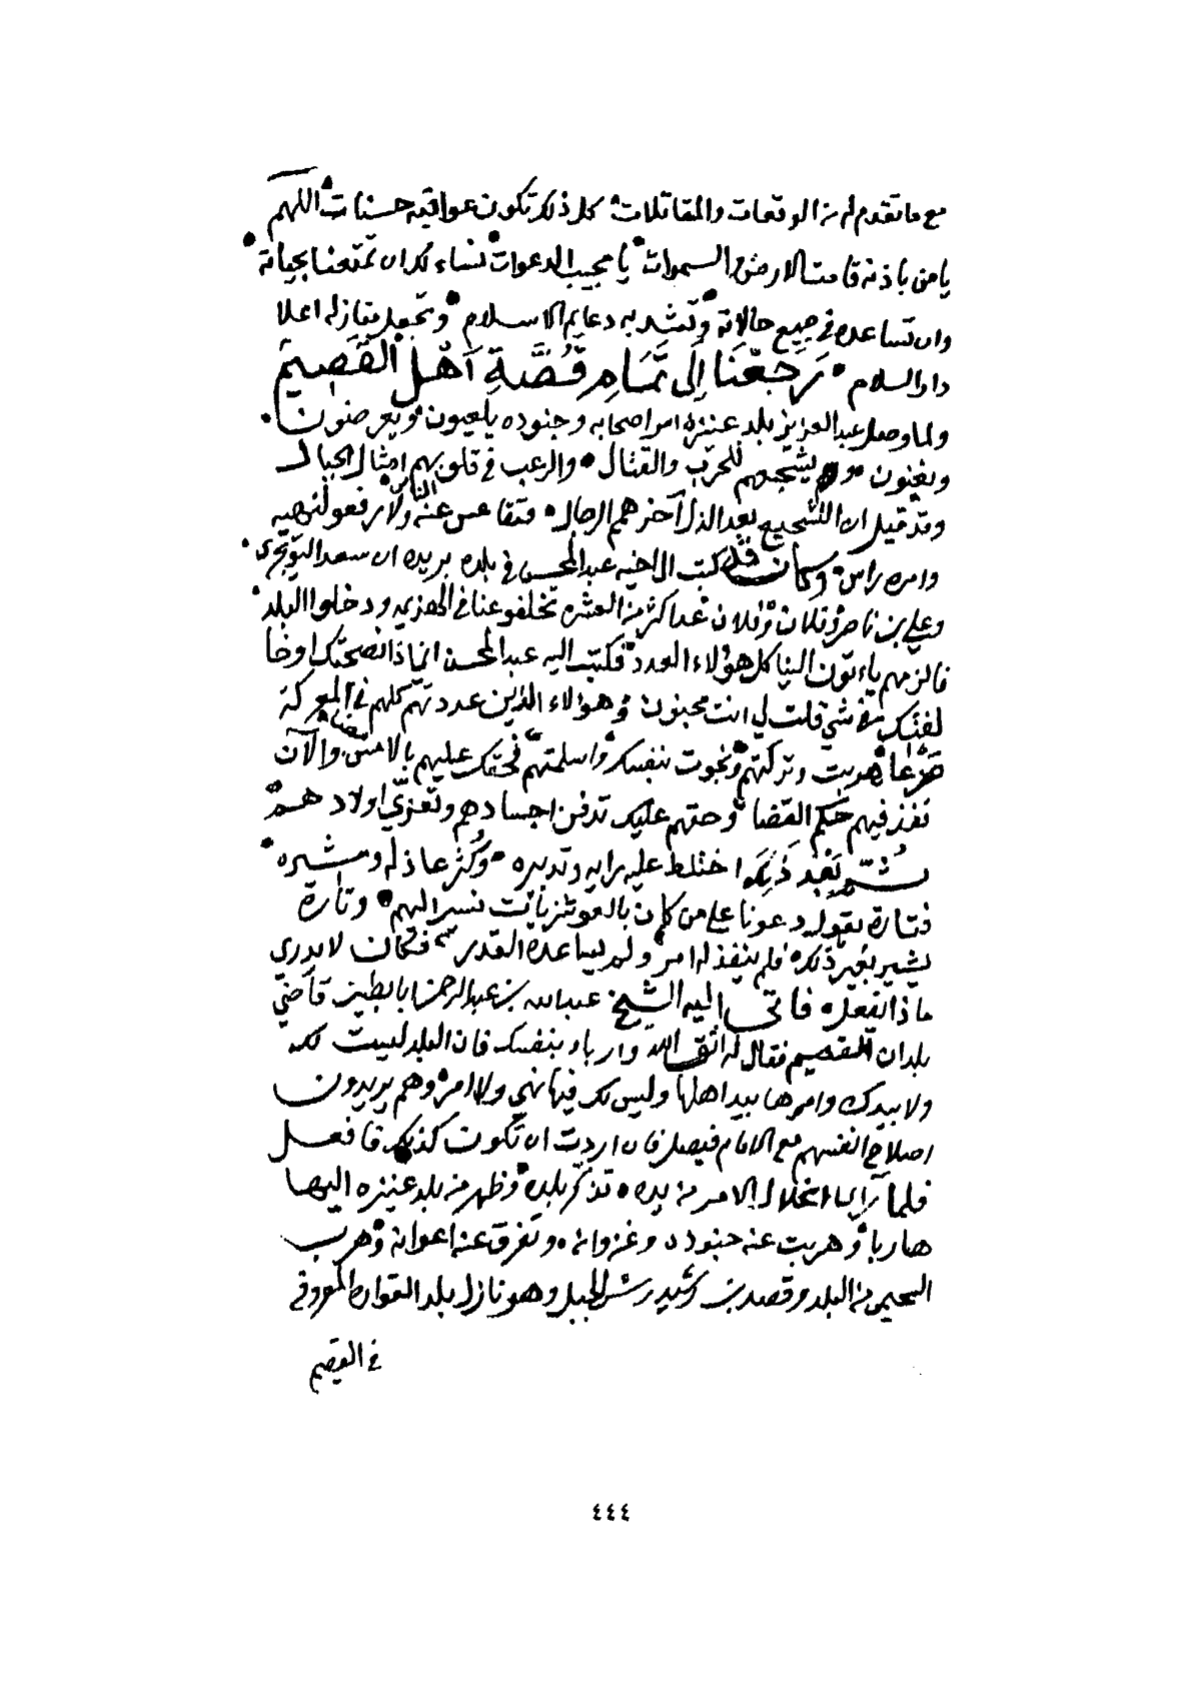 مع ما تقدم له من الوقعات والمقاتلات كل ذلك تكون عواقبه حسنات اللهم
يا من باذنه قامت الارض والسموات يا مجيب الدعوات نساءلك ان تمتعنا بحياته
وان تساعده في جميع حالاته وتشد به دعايم الاسلام وتجعل منازله اعلا
دار السلام رجعنا إلى تمام قصة أهل القصيم
ولما وصل عبدالعزيز بلد عنيزه امر اصحابه وجنوده يلعبون ويعرضون
ويغنون يشجعهم للحرب والقتال والرعب في قلوبهم امثال الجبال
وقد قيل ان التشجيع بعد الذل آخر همم الرجال فتقاعس عنه الناس ولا رفعو لنهيه
وامره راس وكان قد كتب الى اخيه عبدالمحسن في بلده بريده ان سعد التويجري
وعلي بن ناصر وفلان وفلان عد اكثر من العشره تخلفو عنا في الهزيمه ودخلوا البلد
فالزمهم ياءتون الينا كل هؤلاء العدد فكتب اليه عبدالمحسن اذا نصحتك او خا
لفتك في شي قلت لي انت مجنون وهؤلاء الذين عددتهم كلهم في المعركة
هربت وتركتهم ونجوت بنفسك واسلمتهم فحقك عليهم بالامس والآن
نفذ فيهم حكم القضا وحقهم عليك تدفن اجسادهم وتعزي اولادهم
ثم بعد ذلك اختلط عليه رايه وتدبيره وكثر عاذله ومشيره
فتارة يقول دعونا على من كان بالعوشزيات نسير اليهم وتارة
يشير بغير ذلك فلم ينفذ له امر ولم يساعده القدر فكان لا يدري
ماذا يفعل فاتى اليه الشيخ عبدالله بن عبدالرحمن ابا بطين قاضي
بلدان القصيم فقال له اتق الله وارباء بنفسك فان البلد ليست لك
ولا بيدك وامرها بيد اهلها وليس لك فيها نهي ولا امر وهم يريدون
اصلاح انفسهم مع الامام فيصل فان اردت ان تكون كذلك فافعل
فلما راى انحلال الامر من يده تذكر بلده وظهر من بلد عنيزه اليها
هاربا وهربت عنه جنوده وغزوانه وتفرق عنه اعوانه وهرب
السحيمي من البلد وقصد بن رشيد رئيس الجبل وهو نازل بلد القواره المعروف
في القصيم
٤٤٤